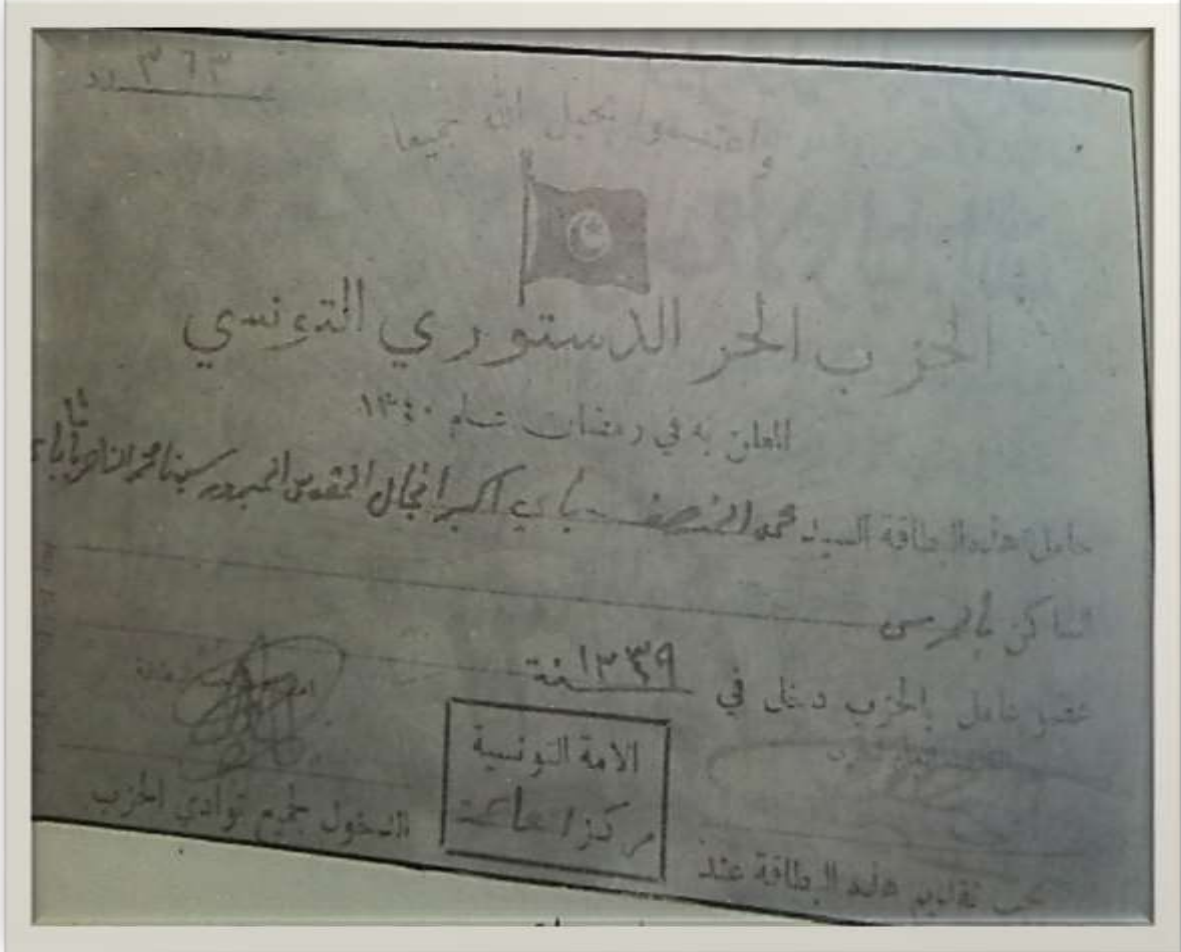 عـ٣٦٣ـدد
واعتصموا بحبل الله جميعا
الحزب الحر الدستوري التونسي
المعلن به في رمضان عام ١٣٤٠
حامل هذه البطاقة السيد محمد المنصف باي اكبر انجال المقدس المبرور سيدنا محمد الناصر باشا باي
الساكن بالمرسى
عضو عامل بالحزب دخل في سنة ١٣٣٩
الامة التونسية
مركز العاصمة
يجب تقديم هذه البطاقة عند الدخول لجميع نوادي الحزب